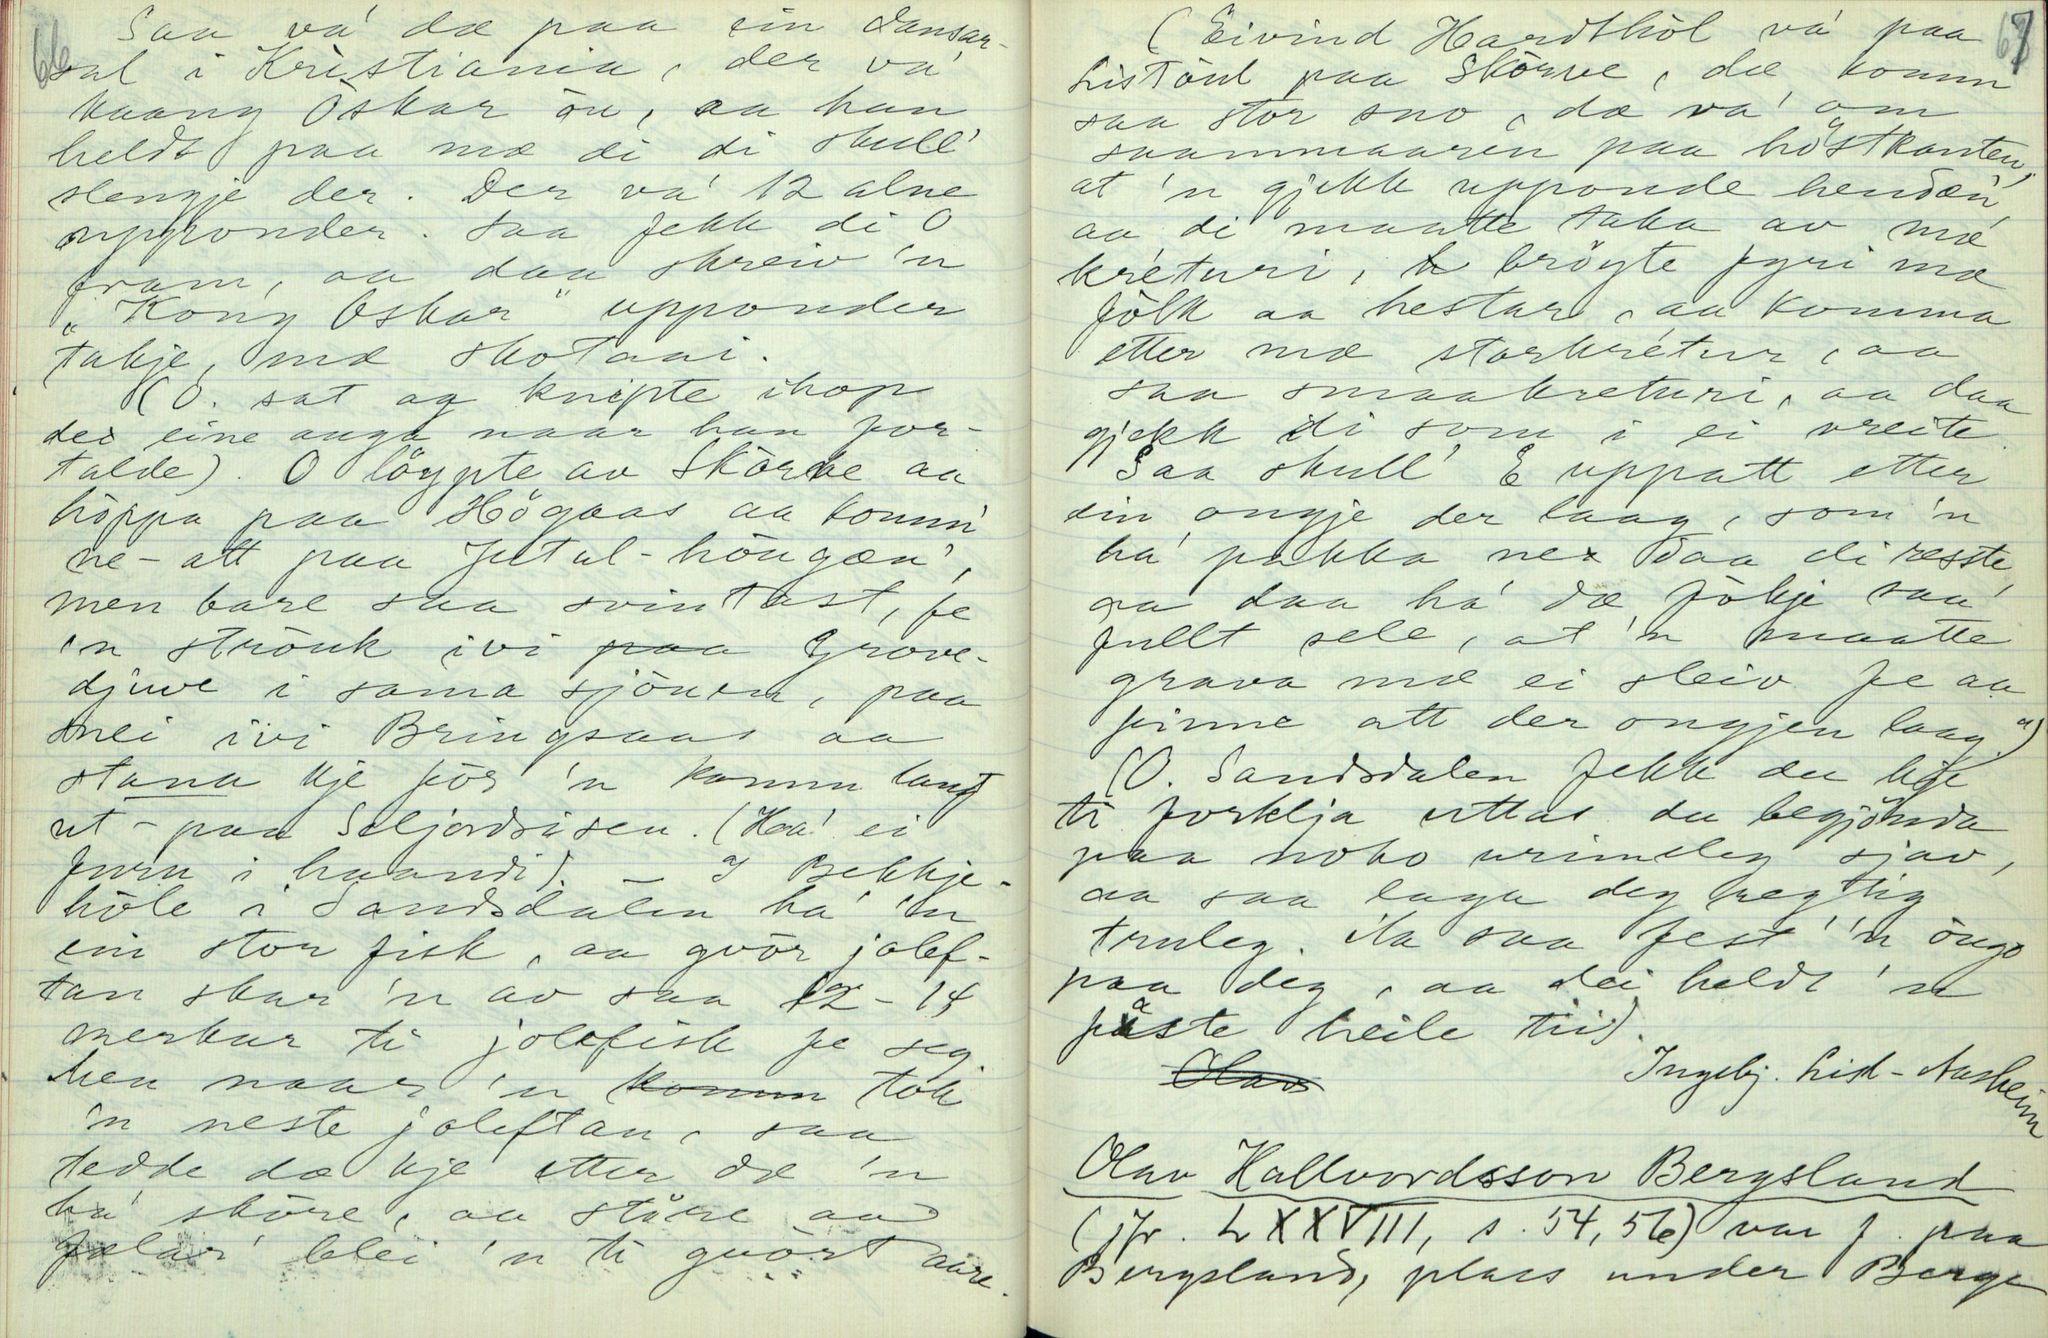 66
Saa va' dæ paa ein dansar-
sal i Kristiania, der va'
kaang Òskar òu, aa han
heldt paa mæ di di skull'
slengje der. Der va' 12 alne
upponder. Saa fekk di O
fram, aa daa skreiv 'n
"Kong Oskar" upponder
takje, mæ skotaai.
(O. sat og knipte ihop
dei eine auga naar han for-
talde). O löypte av Skòrve aa
hòppa paa Högaas aa komm'
ne-att paa Jutul-hôugæn',
men bare saa svintast, fe
'n strouk ivi paa Grove-
djuve i sama sjòuen, paa
snei ivi Bringsaas aa
stana kje för 'n komm langt
ut-paa Seljordsisen. (Haa' ei
furu i haandi). – I Bekkje-
hòle i Sandsdalen ha' 'n
ein stor fisk, aa gvòr jolef-
tan skar 'n av saa 12-14
merkur ti jolefisk fe seg
hen naar 'n komm tok
'n neste joleftan, saa
tedde dæ kje etter dæ 'n
ha' skòre, aa större aa
gjælar' blei 'n ti gvòrt aare.
67
(Eivind Hardthòl va' paa
Listòul paa Skòrve, dæ komm
saa stor sno, dæ va' om
saammaaren paa höstkanten,
at 'n gjekk upponde hendæn',
aa di maatte taka av mæ
kréturi, bröyte fyri mæ
fòlk aa hestar, aa komma
etter mæ storkrétur, aa
saa smaakreturi, aa daa
gjekk di som i ei vreite.
Saa skull' E uppatt etter
ein ongje der laag, som 'n
ha' pakka ne daa di reiste,
aa daa ha' dæ fòkje saa'
fullt sele, at 'n maatte
grava mæ ei sleiv fe aa
finne att der ongjen laag.")
(O. Sandsdalen fekk du kje
ti forklja uttas du begjönda
paa noko urimeleg sjav,
aa saa laga deg hegtig
truleg. Aa saa fest' 'n òugo
paa deg, aa dei heldt 'n
paaste heile tii).
Olav
Ingebj. Lid-Aasheim
Olav Hallvordsson Bergsland
(jfr. LXXVIII, s. 54, 56) var f. paa
Bergsland, plass under Berge